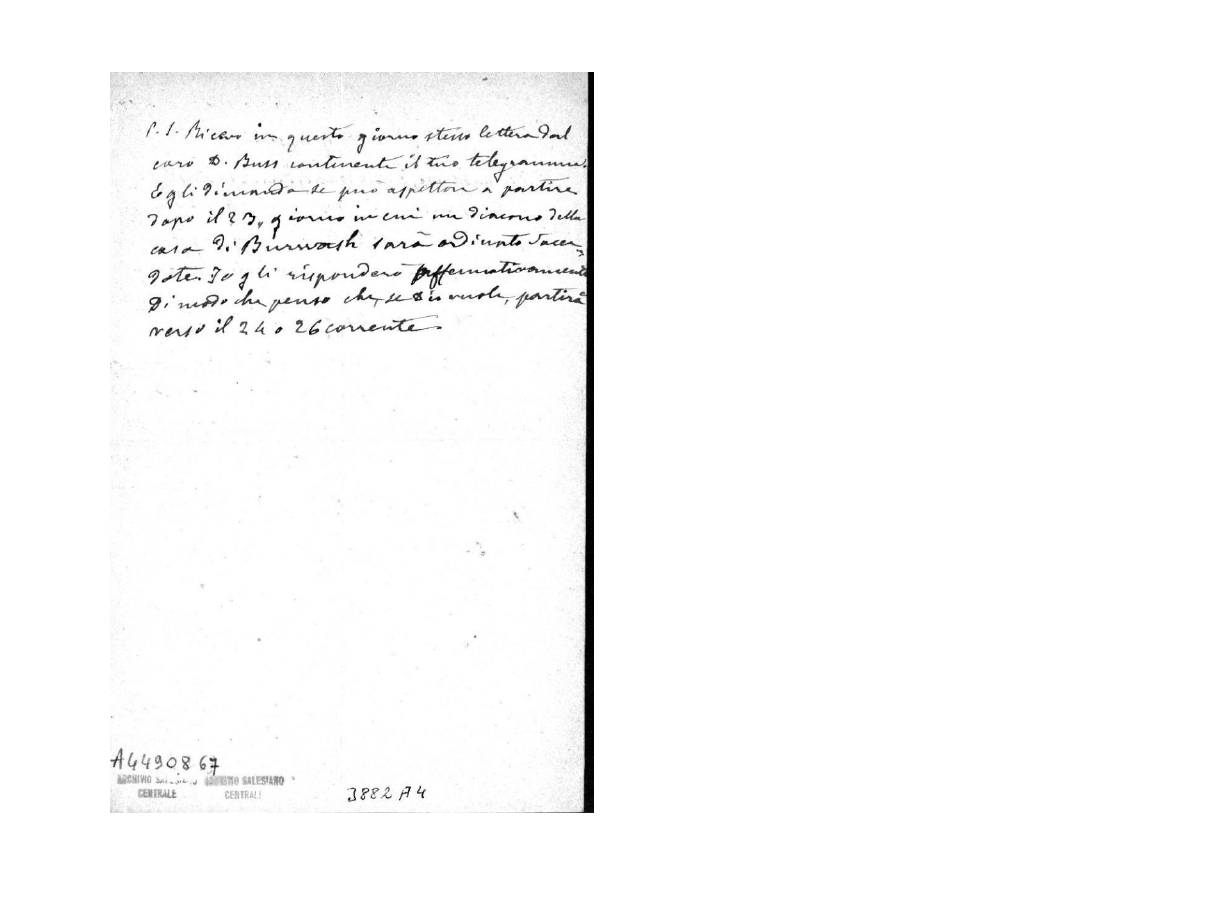 P. S. Ricevo in questo giorno stesso lettera dal
caro D. Buss contenente il tuo telegramma.
Egli dimanda se può aspettare a partire
dopo il 23, giorno in cui un diacono della
casa di Burwash sarà ordinato Sacer-
dote. Io gli risponderò affermativamente
Di modo che penso che, se Dio vuole, partirà
verso il 24 o 26 corrente.
A4490867
ARCHIVIO SALESIANO
CENTRALE
ARCHIVIO SALESIANO
CENTRALE
3882 A4